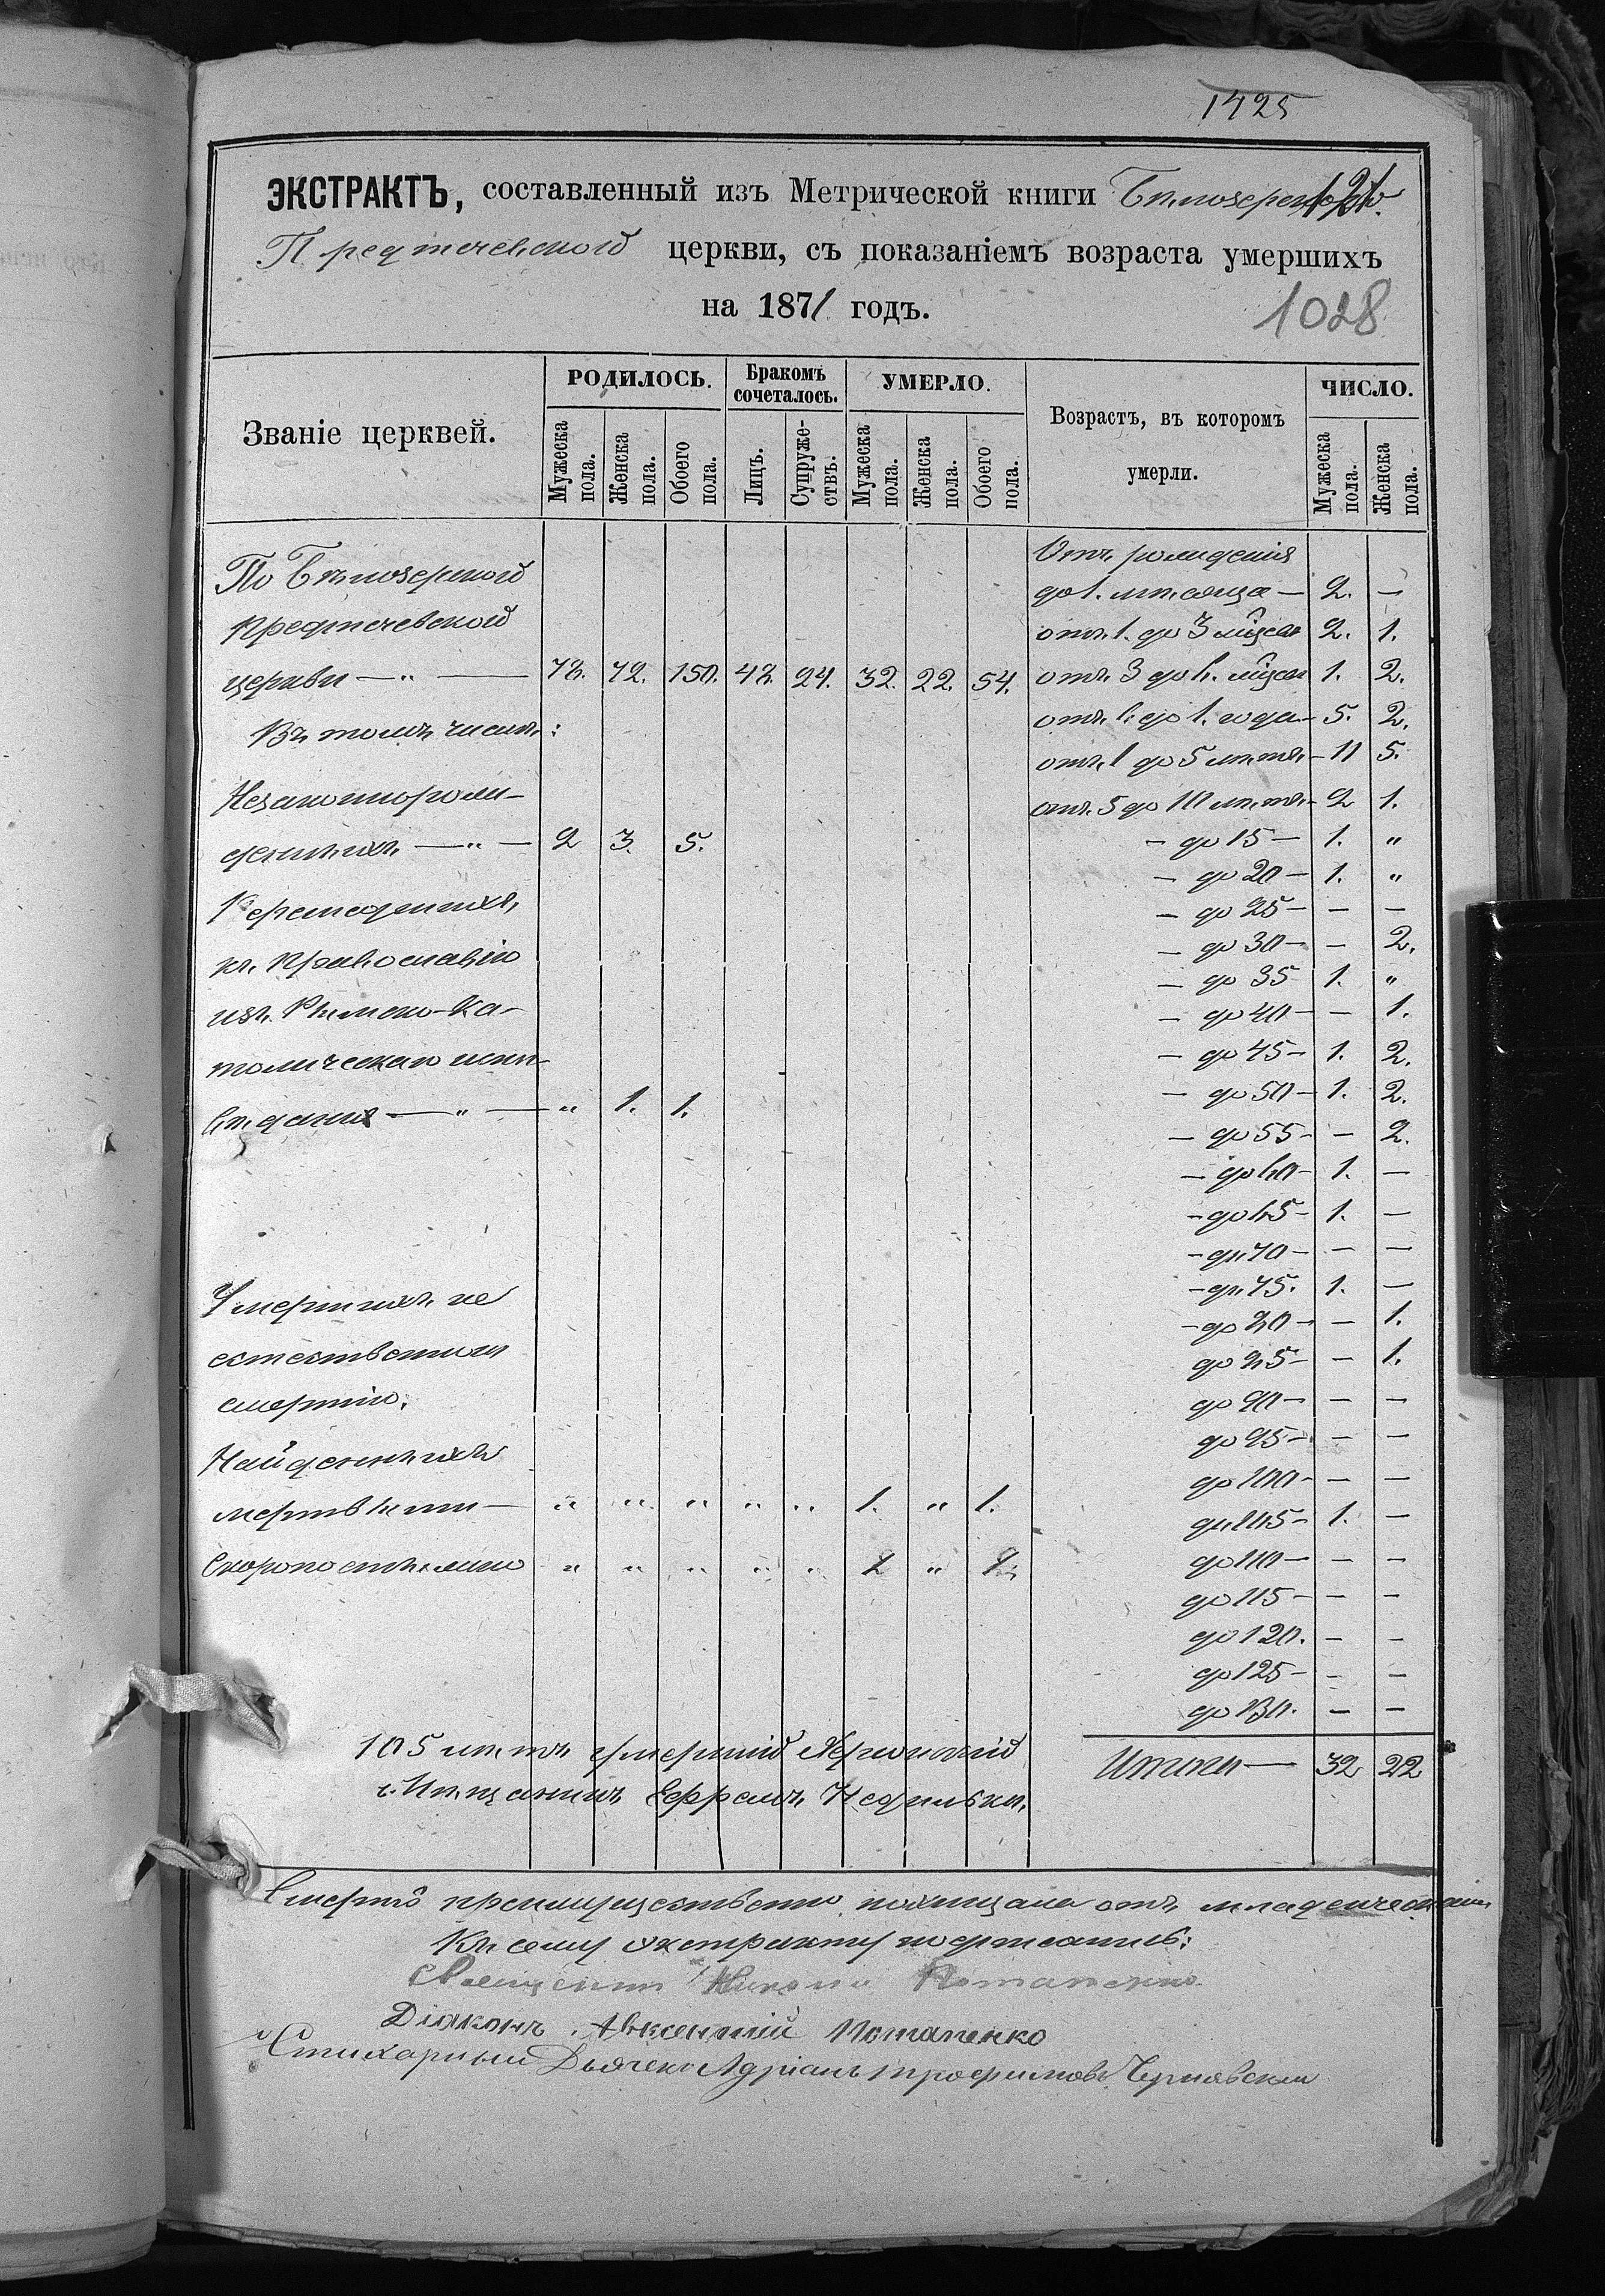 1425
ЭКСТРАКТЪ, составленный изъ Метрической книги Бѣлозерской
Предтечевской церкви, съ показаніемъ возраста умершихъ
на 1871 годъ.
1028
Званіе церквей.
РОДИЛОСЬ.
Бракомъ сочеталось.
УМЕРЛО.
Возрастъ, въ которомъ умерли.
ЧИСЛО.
Мужеска пола.
Женска пола.
Обоего пола.
Лицъ.
Супружествъ.
Мужеска пола.
Женска пола.
Обоего пола.
Мужеска пола.
Женска пола.
По Бѣлозерской
Предтечевской
церкви — " — 78. 72. 150. 48. 24. 32. 22. 54.
Въ томъ числѣ:
Незаконнорож-
денныхъ — " — 2 3. 5.
Перешедшихъ
къ Православію
изъ Римско-Ка-
толическаго испо-
вѣданія — " — " 1. 1.
Умершихъ не
естественною
смертію:
Найденныхъ
мертвыми — " " " " " 1. " 1.
Скоропостижно " " " " " 1 " 1.
Отъ рожденія
до 1. мѣсяца — 2. —
отъ 1. до 3 мѣсяц 2. 1.
отъ 3 до 6. мѣсяц 1. 2.
отъ 6 до 1. года — 5. 2.
отъ 1 до 5 лѣтъ — 11 5.
отъ 5 до 10 лѣтъ — 2 1.
— до 15 — 1. "
— до 20 — 1. "
— до 25 — — —
— до 30 — — 2.
— до 35 1. "
— до 40 — — 1.
— до 45 — 1. 2.
— до 50 — 1. 2.
— до 55 — — 2.
— до 60 — 1. —
— до 65 — 1. —
— до 70 — — —
— до 75. 1. —
— до 80 — — 1.
до 85 — — 1.
до 90 — — —
до 95 — — —
до 100 — — —
до 105 — 1. —
до 110 — — —
до 115 — — —
до 120. — —
до 125 — — —
до 130. — —
Итого — 32 22
105 лѣтъ умершій Херсонскій
Мѣщанинъ Ефремъ
Смерть преимущественно похищала отъ младенческ
Къ сему экстракту подписались:
Священник Потапенко
Діяконъ Авксентій Потапенко
Стихарный Дьячекъ Адріанъ Трофимовъ Чернявскій